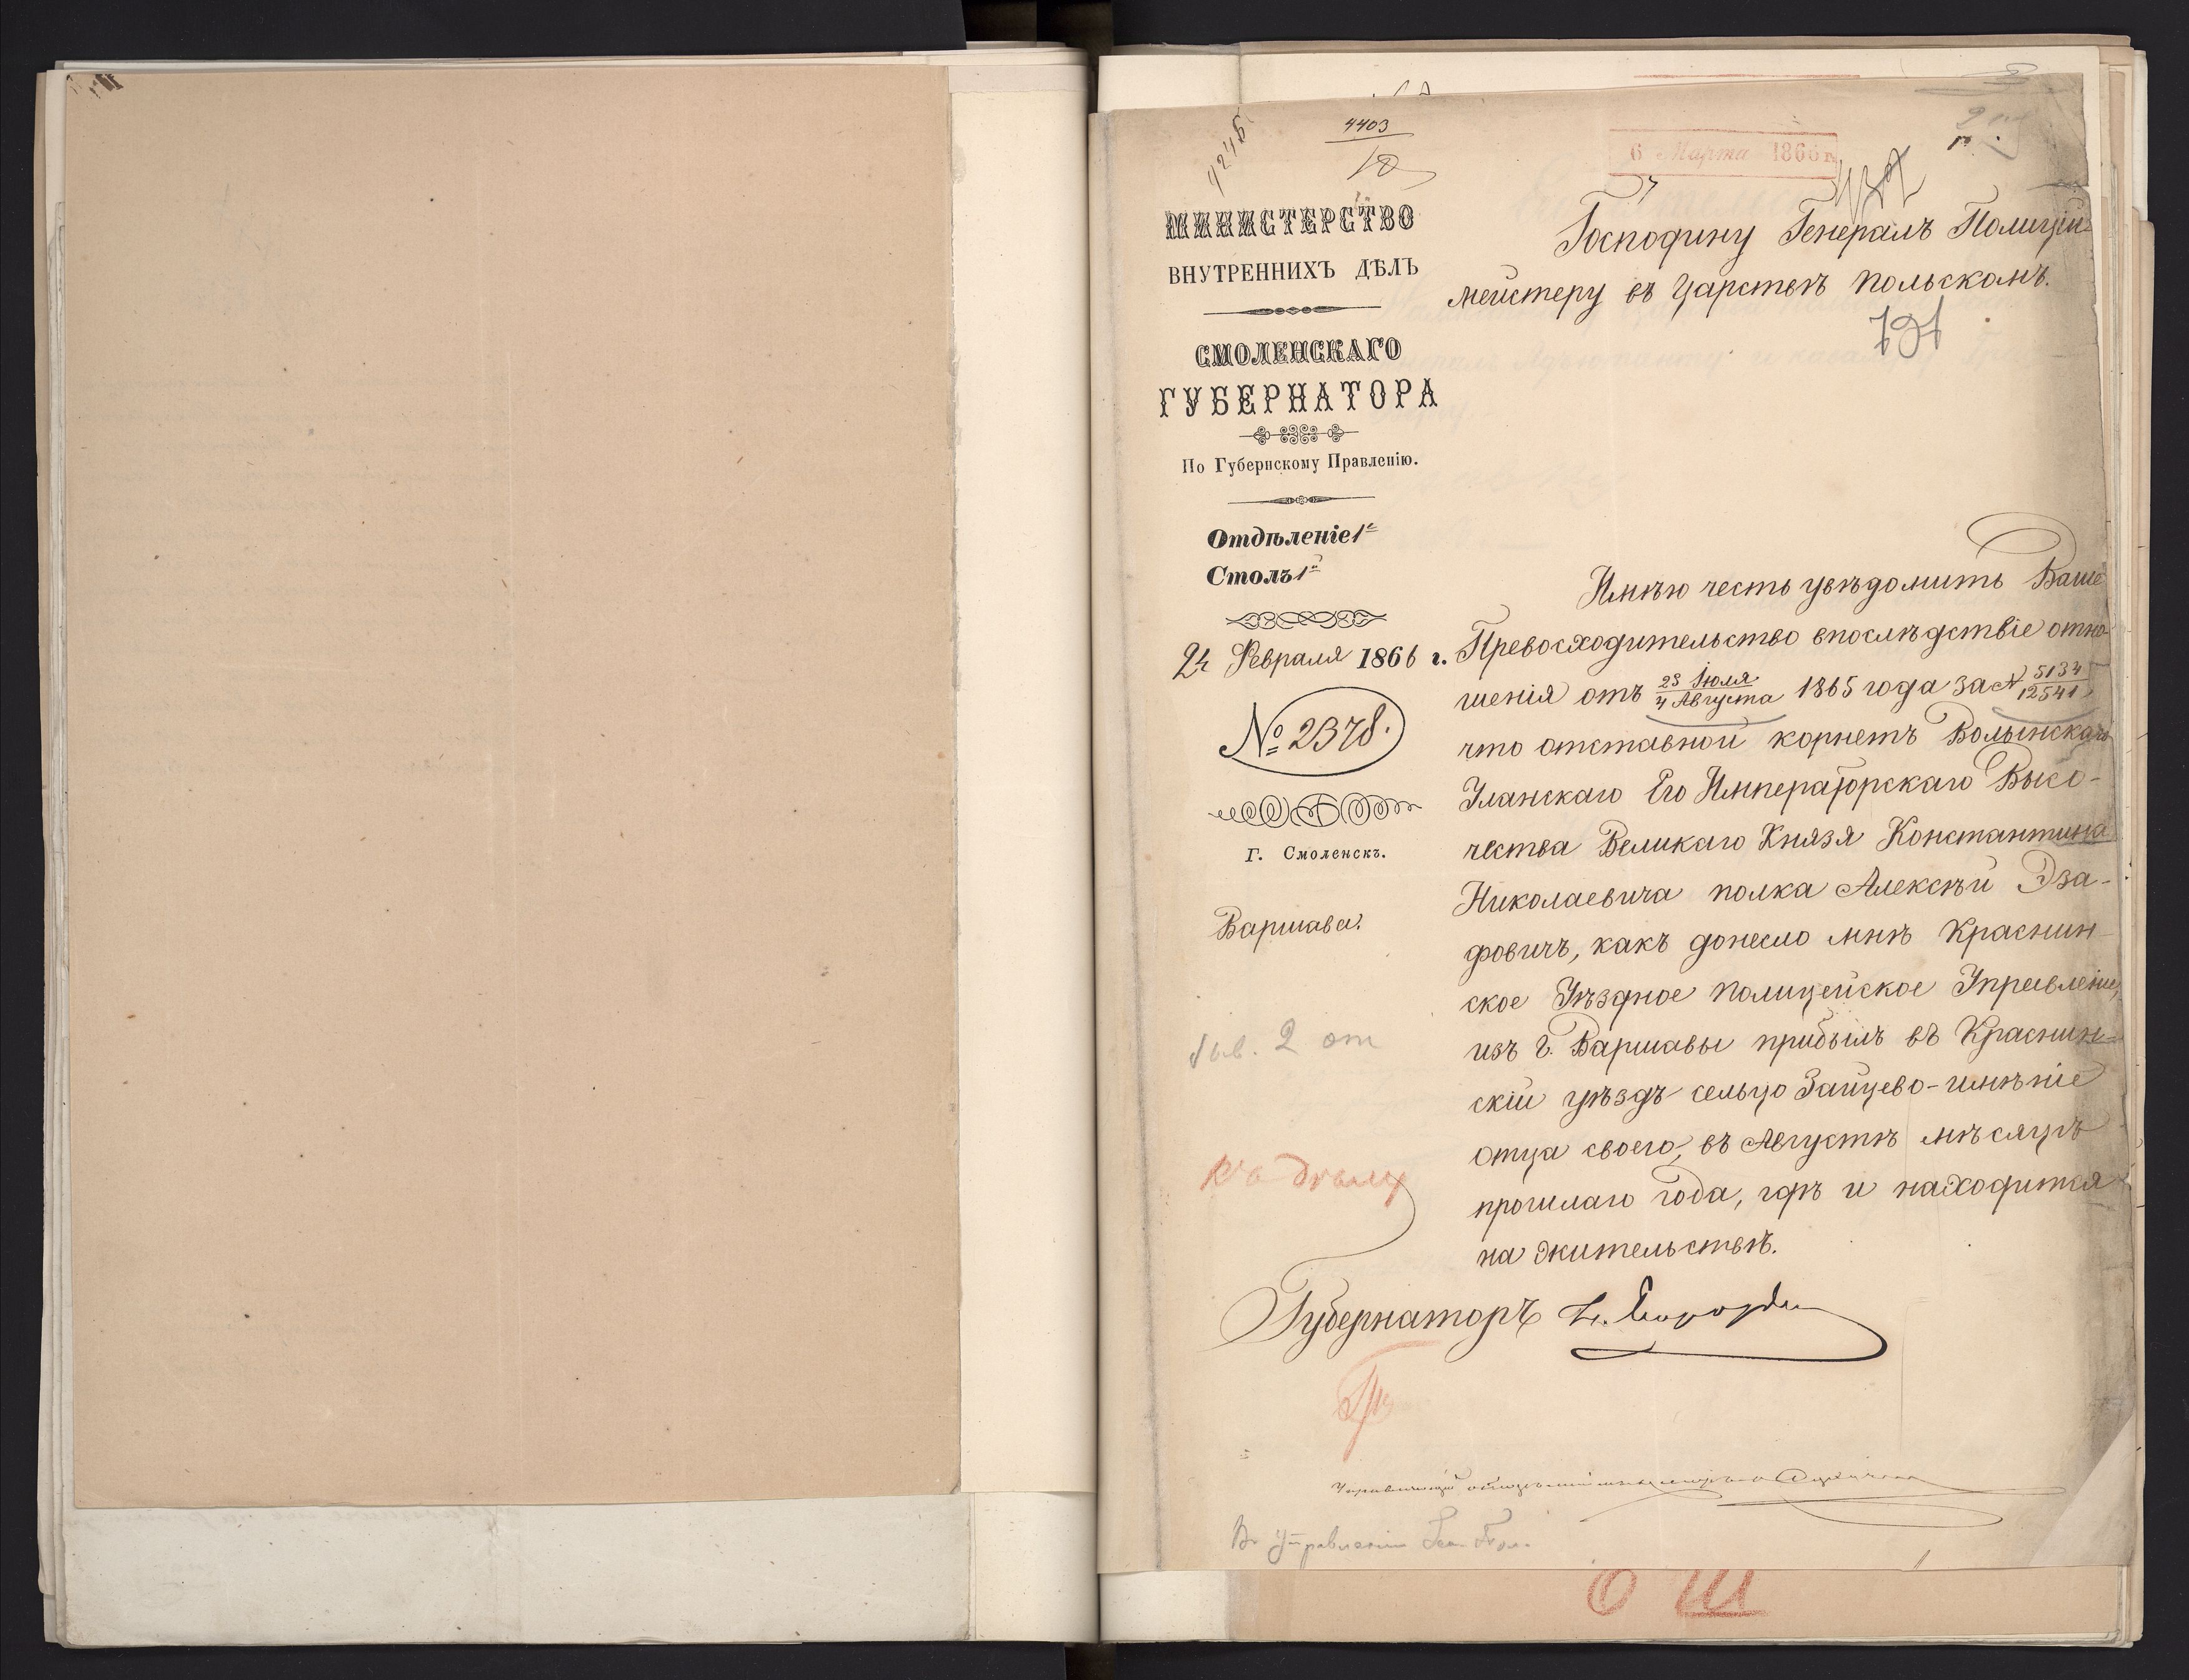 4403
6 Марта 1866 г.
МИНИСТЕРСТВО
ВНУТРЕННИХЪ ДѢЛЪ
СМОЛЕНСКАГО
ГУБЕРНАТОРА
По Губернскому Правленію.
Отдѣленіе 1е
Столъ 1й
24 Февраля 1866 г.
№ 2378.
Г. Смоленскъ.
Варшава.
Господину Генералъ Полицій-
мейстеру въ Царствѣ Польскомъ.
Имѣю честь увѣдомить Ваше
Превосходительство впослѣдствіе отно-
шенія отъ 23 Іюля / 4 Августа 1865 года за № 5134 / 12541,
что отставной корнетъ Волынскаго
Уланскаго Его Императорскаго Высо-
чества Великаго Князя Константина
Николаевича полка Алексѣй Эза-
фовичъ, какъ донесло мнѣ Краснин-
ское Уѣздное Полицейское Управленіе,
изъ г. Варшавы прибылъ въ Краснин-
скій уѣздъ сельцо Зайцево-имѣніе
отца своего, въ Августѣ мѣсяцѣ
прошлаго года, гдѣ и находится
на жительствѣ.
Губернаторъ
2 от
къ дѣлу
О Ш